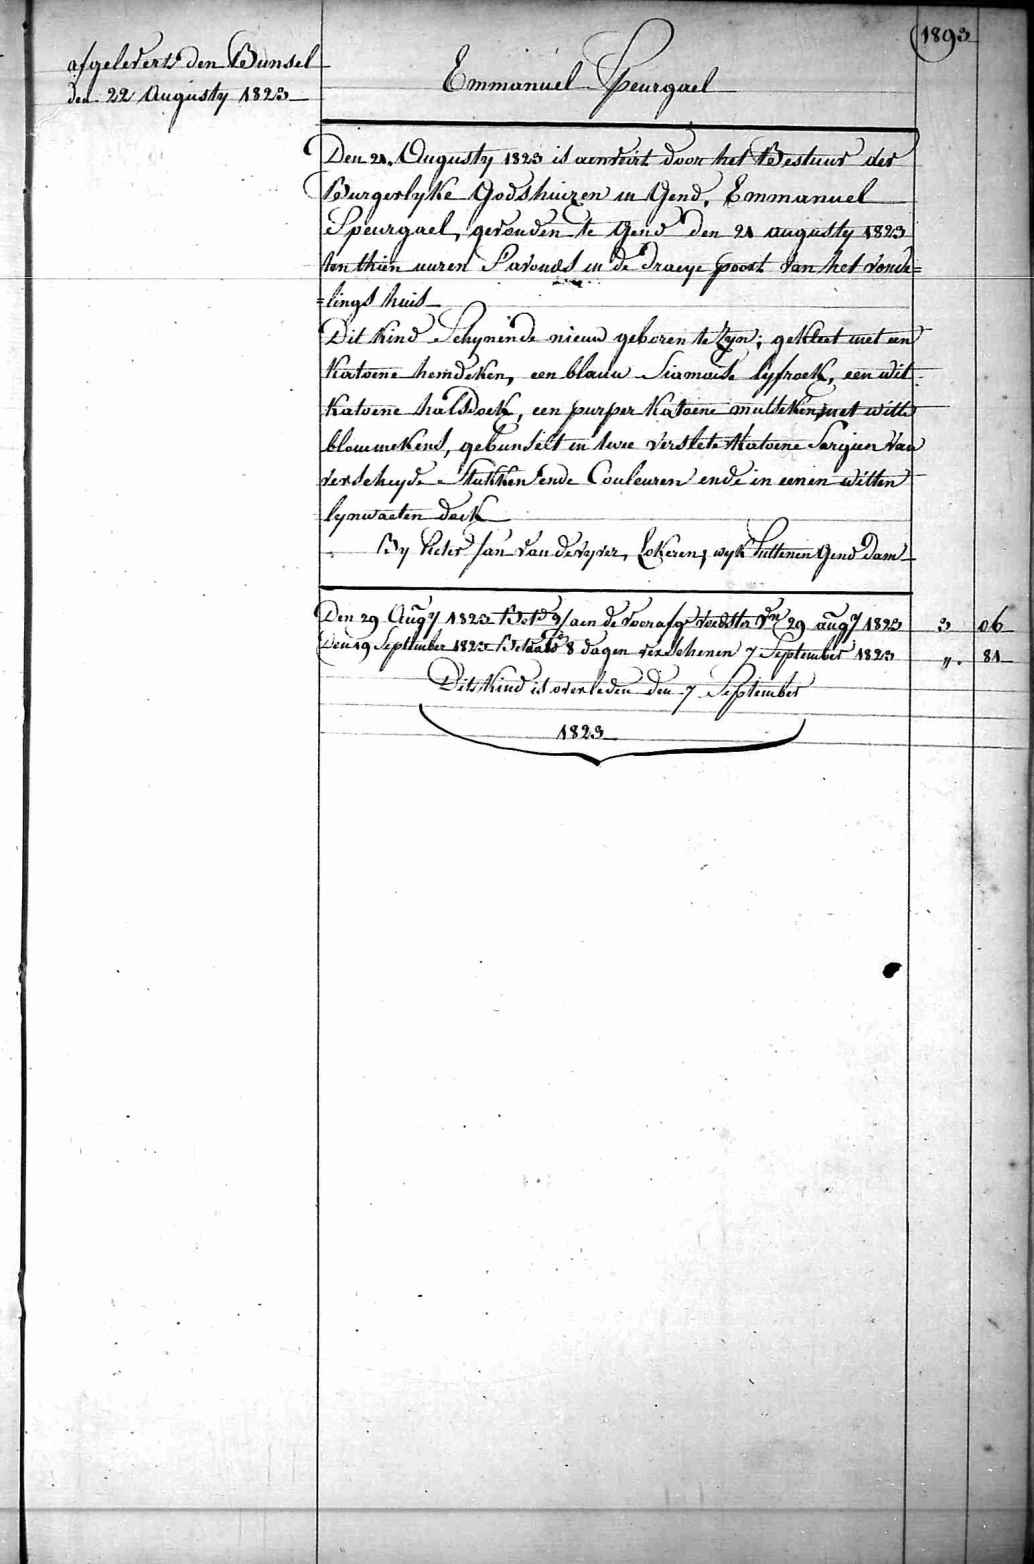 1893
afgelevert den Bunsel
den 22 Augusty 1823
Emmanuel Speurgael
Den 21. Augusty 1823 is aenveirt door het Bestuur der
Burgerlyke Godshuizen in Gend, Emmanuel
Speurgael, gevonden te Gend den 21 augusty 1823
ten thien uuren S'avonds in de draeye poort van het vonde=
=lings huis
Dit Kind Schynende nieuw geboren te Zyn; gekleet met een
Katoene hemdeken, een blauw Siamoise lyfrock, een wit
Katoene halsdoek, een purper Katoene mutseken, met witte
blommekens, gebunselt in twee verslete Katoene Sargien van
verscheyde Stukken ende Couleuren ende in eenen witten
lynwaeten doek
By Pieter Jan van de vyver, Lokeren, wyk Gend Dam
Den 29 Augy 1823 aen de voedster 29 augy 1823 3 06
Den 19 September 1823 Betaald 8 dagen verschenen 7 September 1823 ". 81
Dit Kind is overleden den 7 September
1823